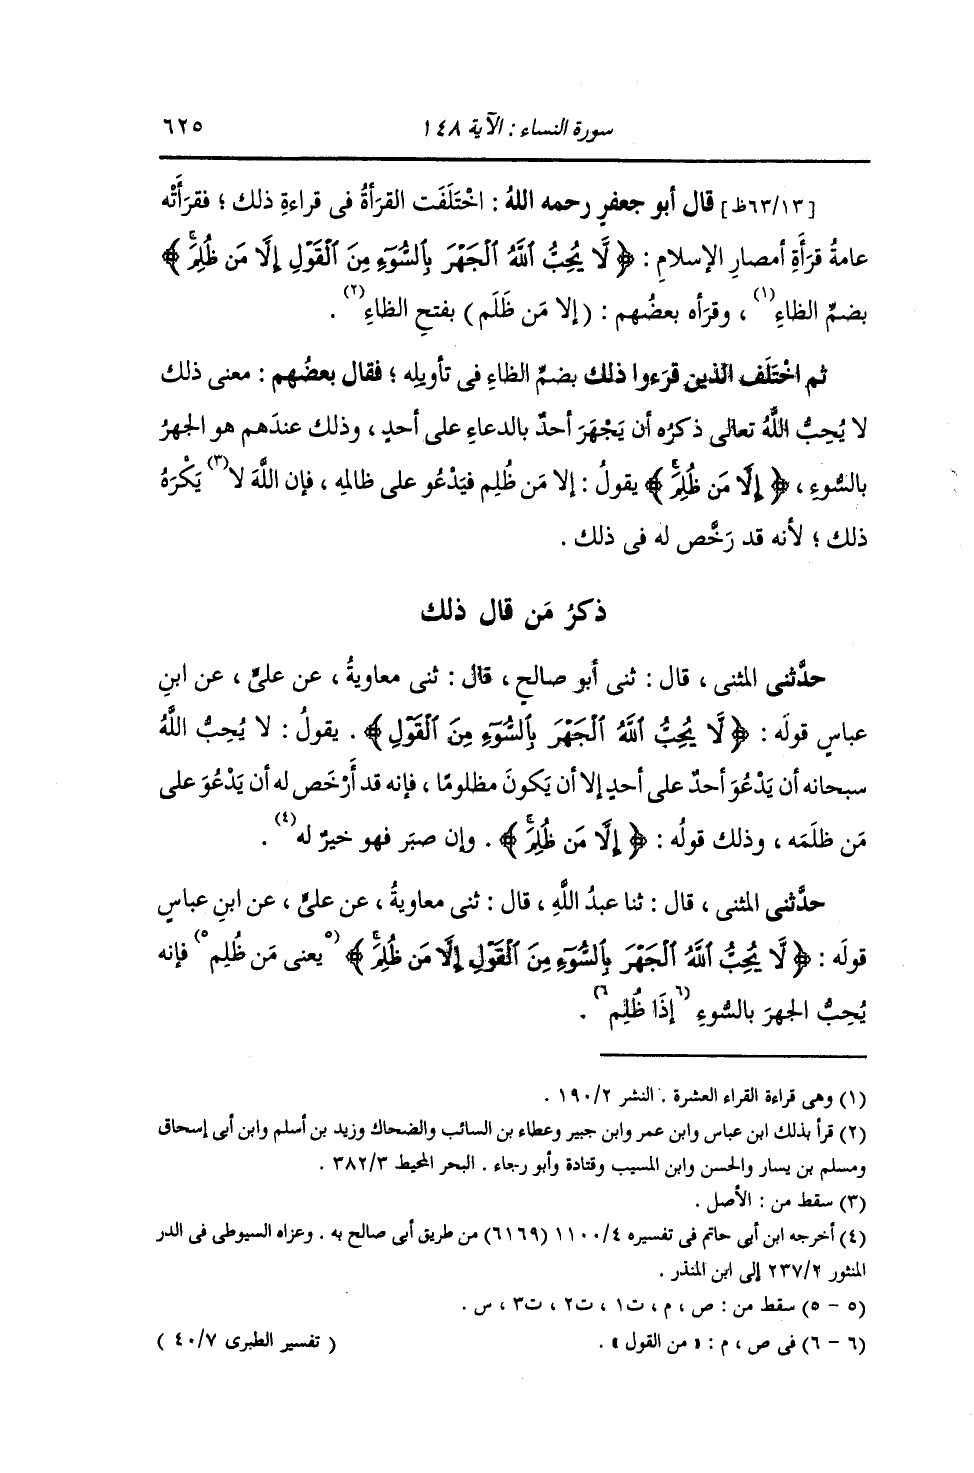 سورة النساء : الآية ١٤٨ ٦٢٥
[٦٣/١٣ظ] قال أبو جعفرٍ رحمه اللهُ : اخْتَلَفَت القرَأةُ فى قراءةِ ذلك ؛ فقرَأَتْه
عامةُ قرَأَةِ أمصارِ الإسلامِ : ﴿ لَّا يُحِبُّ ٱللَّهُ ٱلْجَهْرَ بِٱلسُّوٓءِ مِنَ ٱلْقَوْلِ إِلَّا مَن ظُلِمَۚ ﴾
بضمِّ الظاءِ(١) ، وقرَأه بعضُهم : ( إلا مَن ظَلَم ) بفتحِ الظاءِ(٢) .
ثم اخْتَلَف الذين قرَءوا ذلك بضمِّ الظاءِ فى تأويلِه ؛ فقال بعضُهم : معنى ذلك
لا يُحِبُّ اللَّهُ تعالى ذكرُه أن يَجْهَرَ أحدٌ بالدعاءِ على أحدٍ ، وذلك عندَهم هو الجهرُ
بالسُّوءِ ، ﴿ إِلَّا مَن ظُلِمَۚ ﴾ يقولُ : إلا مَن ظُلِم فيَدْعُو على ظالمِه ، فإن اللَّهَ لا(٣) يَكْرَهُ
ذلك ؛ لأنه قد رَخَّص له فى ذلك .
ذكرُ مَن قال ذلك
حدَّثنى المثنى ، قال : ثنى أبو صالحٍ ، قال : ثنى معاويةُ ، عن علىٍّ ، عن ابنِ
عباسٍ قولَه : ﴿ لَّا يُحِبُّ ٱللَّهُ ٱلْجَهْرَ بِٱلسُّوٓءِ مِنَ ٱلْقَوْلِ ﴾ . يقولُ : لا يُحِبُّ اللَّهُ
سبحانه أن يَدْعُوَ أحدٌ على أحدٍ إلا أن يَكونَ مظلومًا ، فإنه قد أَرْخَص له أن يَدْعُوَ على
مَن ظلَمَه ، وذلك قولُه : ﴿ إِلَّا مَن ظُلِمَۚ ﴾ . وإن صبَر فهو خيرٌ له(٤) .
حدَّثنى المثنى ، قال : ثنا عبدُ اللَّهِ ، قال : ثنى معاويةُ ، عن علىٍّ ، عن ابنِ عباسٍ
قولَه : ﴿ لَّا يُحِبُّ ٱللَّهُ ٱلْجَهْرَ بِٱلسُّوٓءِ مِنَ ٱلْقَوْلِ إِلَّا مَن ظُلِمَۚ ﴾ (٥يعنى مَن ظُلِم٥) فإنه
يُحِبُّ الجهرَ بالسُّوءِ (٦إذَا ظُلِم٦) .
(١) وهى قراءة القراء العشرة . النشر ١٩٠/٢ .
(٢) قرأ بذلك ابن عباس وابن عمر وابن جبير وعطاء بن السائب والضحاك وزيد بن أسلم وابن أبى إسحاق
ومسلم بن يسار والحسن وابن المسيب وقتادة وأبو رجاء . البحر المحيط ٣٨٢/٣ .
(٣) سقط من : الأصل .
(٤) أخرجه ابن أبى حاتم فى تفسيره ١١٠٠/٤ (٦١٦٩) من طريق أبى صالح به . وعزاه السيوطى فى الدر
المنثور ٢٣٧/٢ إلى ابن المنذر .
(٥ - ٥) سقط من : ص ، م ، ت١ ، ت٢ ، ت٣ ، س .
(٦ - ٦) فى ص ، م : « من القول » . ( تفسير الطبرى ٤٠/٧ )